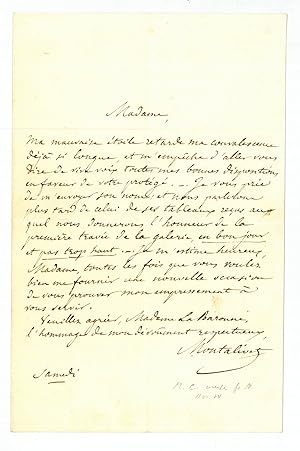 Madame,
Ma mauvaise étoile retarde ma convalescence
déjà si longue et m'empêche d'aller vous
dire de vive voix toutes mes bonnes dispositions
en faveur de votre protégé. — Je vous prie
de m'envoyer son nom, et nous parlerons
plus tard de celui de ses tableaux
quel nous donnerons l'honneur de la
première travée de la galerie en bon jour
et pas trop haut. — Je m'estime heureux,
Madame, toutes les fois que vous voulez
bien me fournir une nouvelle occasion
de vous prouver mon empressement à
vous servir.
Veuillez agréer, Madame La Baronne,
l'hommage de mon dévouement respectueux,
Montalivet
Samedi